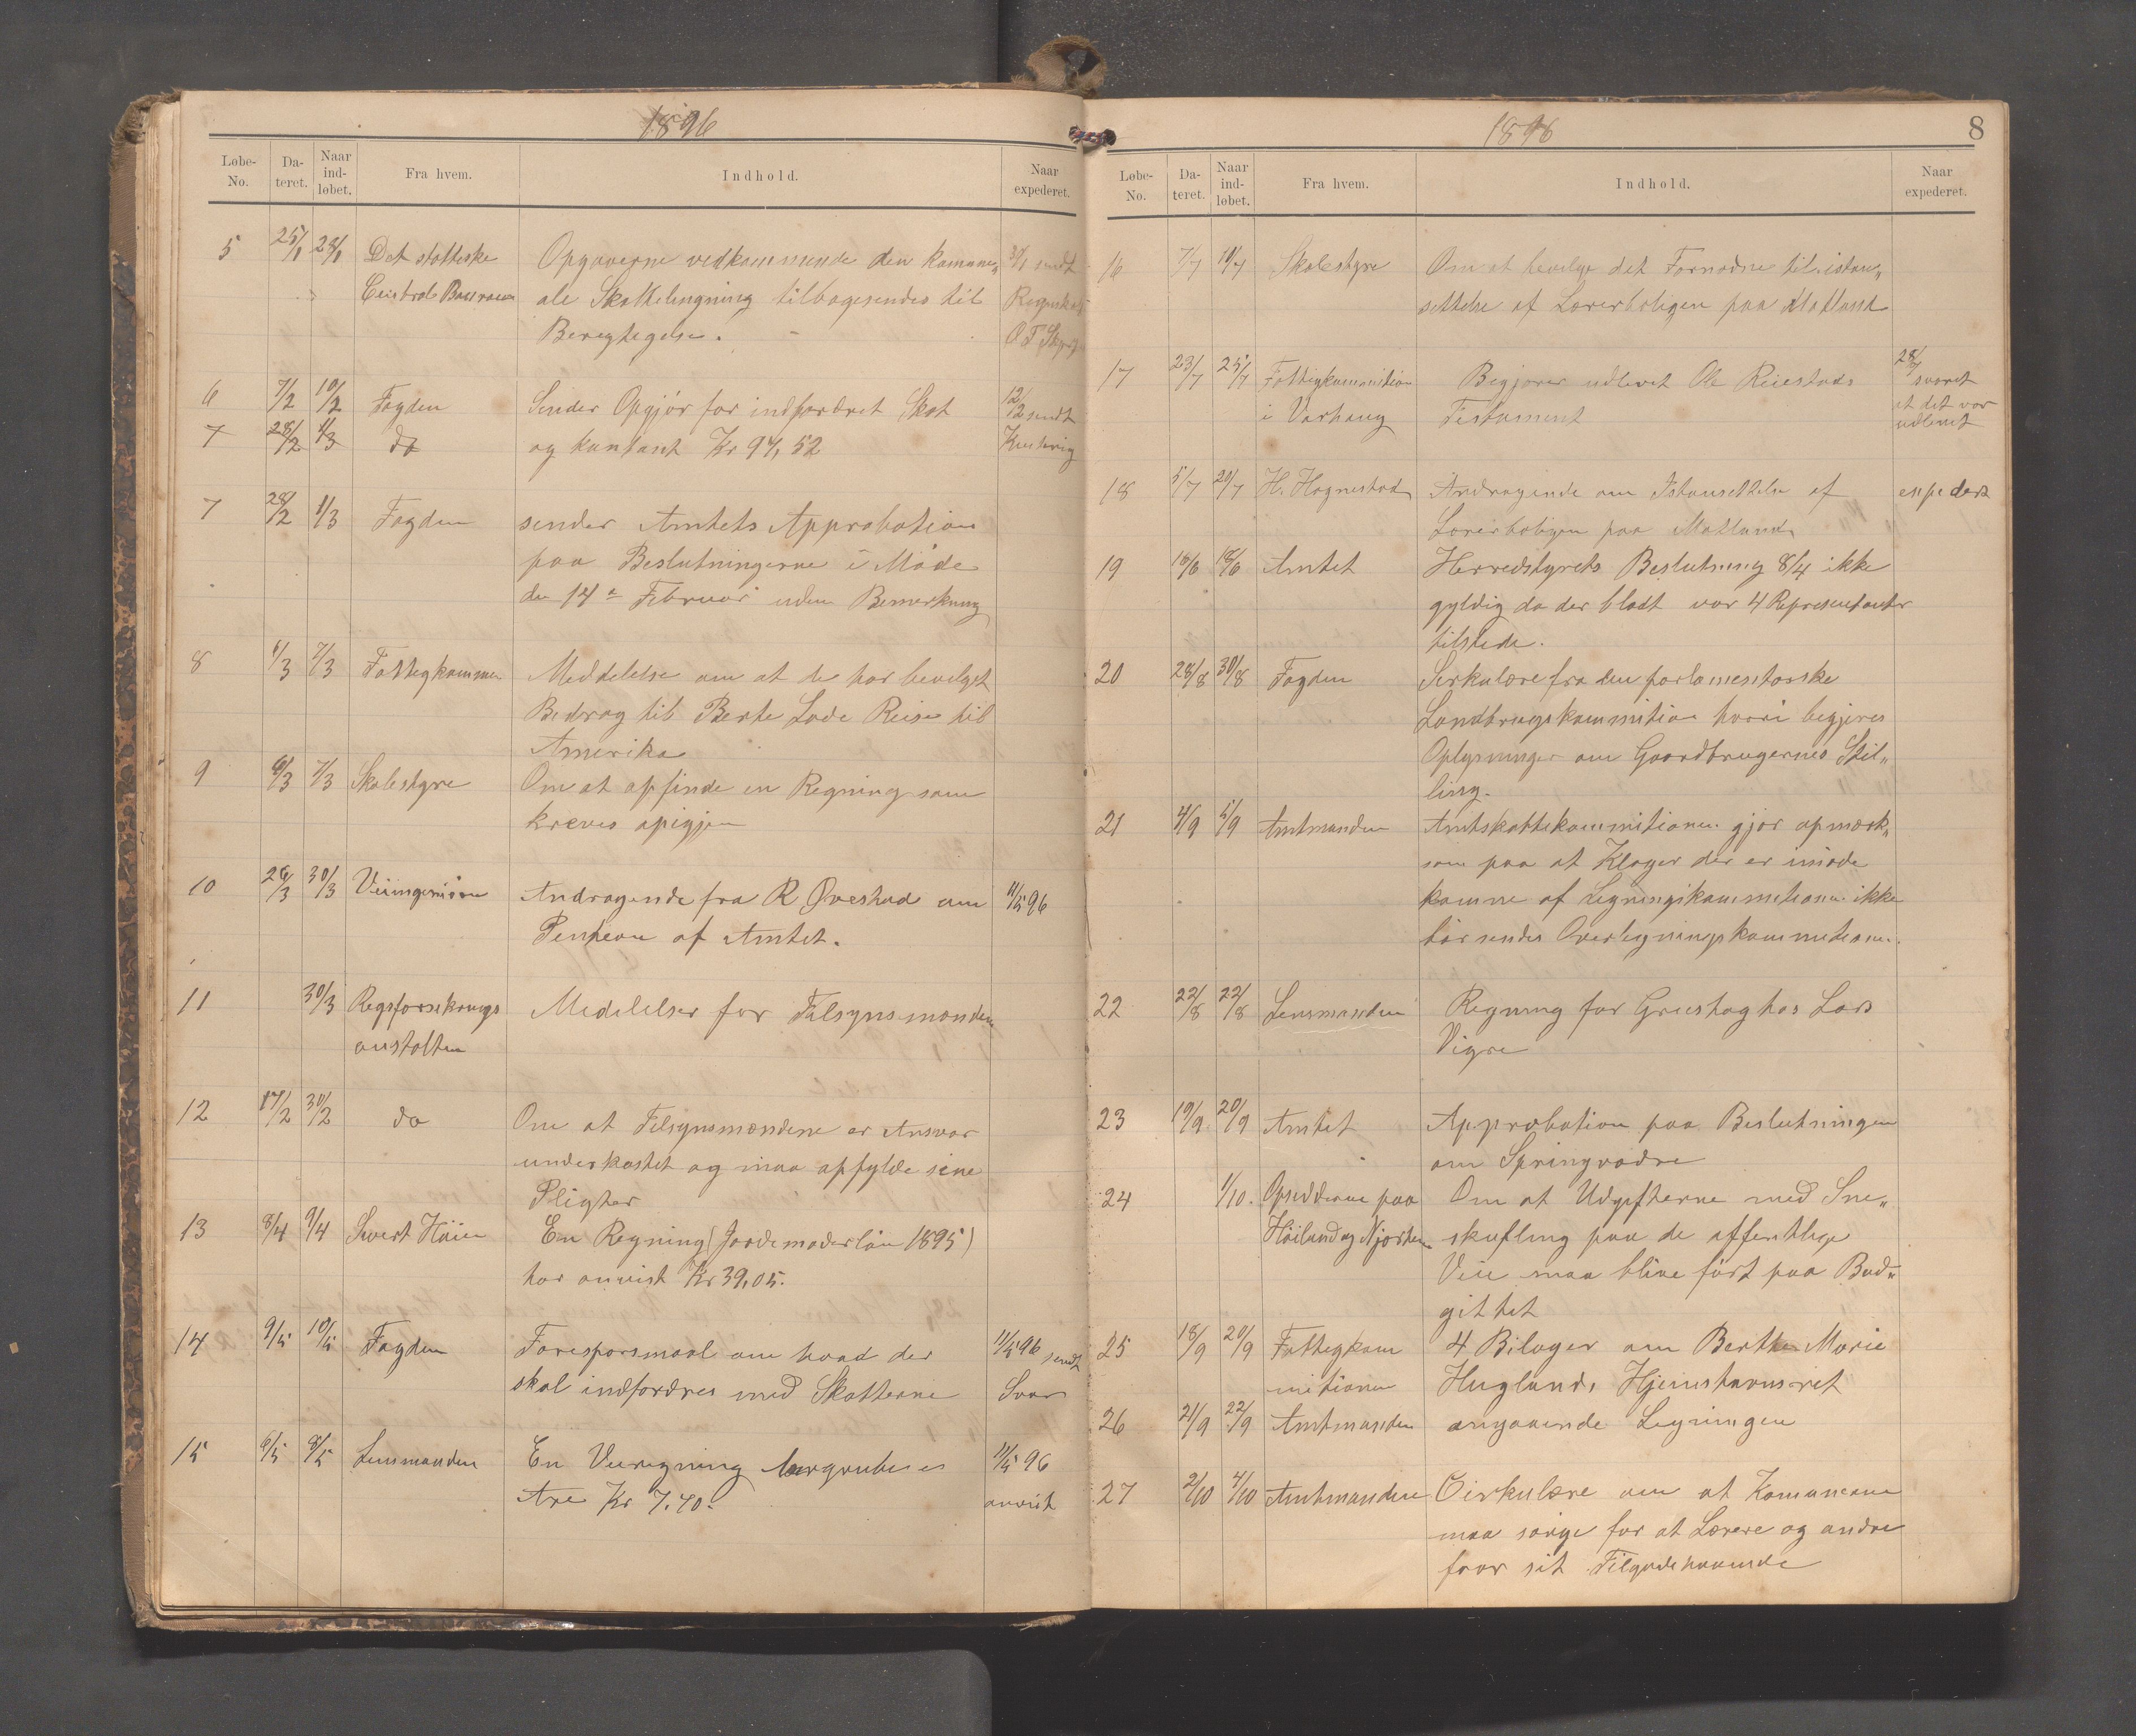 1896
Løbe-No. Da-teret. Naar ind-løbet. Fra hvem. Indhold. Naar expederet.
5 25/1 28/1 Det statteske Opgaverne vedkommende den komune„ 31/1 sendt
Central Bauraua ale Skatteligning tilbagesendes til Regnskab
Beregtegelse. O T
6 7/2 10/2 Fogden Sender Opgjør for indfordret Skat 12/2 sendt
7 28/2 1/3 do og kontant Kr 94,52
7 28/2 1/3 Fogden sender Amtets Approbation
paa Beslutningerne i Møde
den 14de Februar uden Bemerkning
8 1/3 7/3 Fattigkommen Meddelelse om at de har bevelget
Bedrag til Berte Lode Reise til
Amerika
9 6/3 7/3 Skolestyre Om at opfinde en Regning som
kreves opigjen
10 26/3 30/3 Veiingeniøre Andragende fra R Øvestad om 11/5 96
Pension af Amtet.
11 30/3 Regsforsekrongs Medelelser for Tilsynsmonden
anstalten
12 17/2 30/2 do Om at Tilsynsmændene er Ansvar
underkastet og maa opfylde sine
Pligter
13 8/4 9/4 Sivert Häie En Regning (Jordemoderløn 1895)
har anvist Kr 39,05.
14 9/5 10/5 Fogden Forespørsmaal om hvad der 11/5 96 sendt
skal indfordres med Skatterne Svar
15 6/5 8/5 Lensmanden En Veiregning 11/5 96
Are Kr 7,40. anvist
1896 8
Løbe-No. Da-teret. Naar ind-løbet. Fra hvem. Indhold. Naar expederet.
16 7/7 10/7 Skolestyre Om at bevelge det Fornødne til istan„
settelse af Lærerboligen paa Motland
17 23/7 25/7 Fattigkommition Begjærer udlevet Ole Reiestads 28/7 svaret
i Varhaug Testament at det var
udlevet
18 5/7 20/7 H. Hognestad Andragende om Istansettelse af expedert
Lærerboligen paa Motland
19 16/6 18/6 Amtet Herredstyrets Beslutning 8/4 ikke
gyldig da der blodt var 4 Representanter
tilstede.
20 28/8 30/8 Fogden Serkulære fra den parlamentarske
Landbrugskommition hvori begjeres
Oplysninger om Gaardbrugernes Stil„
ling.
21 4/9 5/9 Amtmanden Amtskattekommitionen gjør opmerk„
som paa at Klager der er imøde
komne af Legningskommitionen ikke
bør sendes Overlegningskommitionen.
22 22/8 22/8 Lensmanden Regning for Grustag hos Lars
Vigre
23 19/9 20/9 Amtet Approbation paa Beslutningen
om Springvadre
24 1/10. Opsedderne paa Om at Udgifterne med Sne„
Høiland og Njærhem skufling paa de offentlige
Veie maa blive ført paa Bud„
gittet
25 18/9 20/9 Fattegkom 4 Bilager om Berthe Marie
mitionen Huglands Hjemstavnsret
26 21/9 22/9 Amtmanden angaaende Legningen
27 2/10 4/10 Amtmanden Cirkulære om at Komuneene
maa sørge for at Lærere og andre
faar sit Tilgodehavende